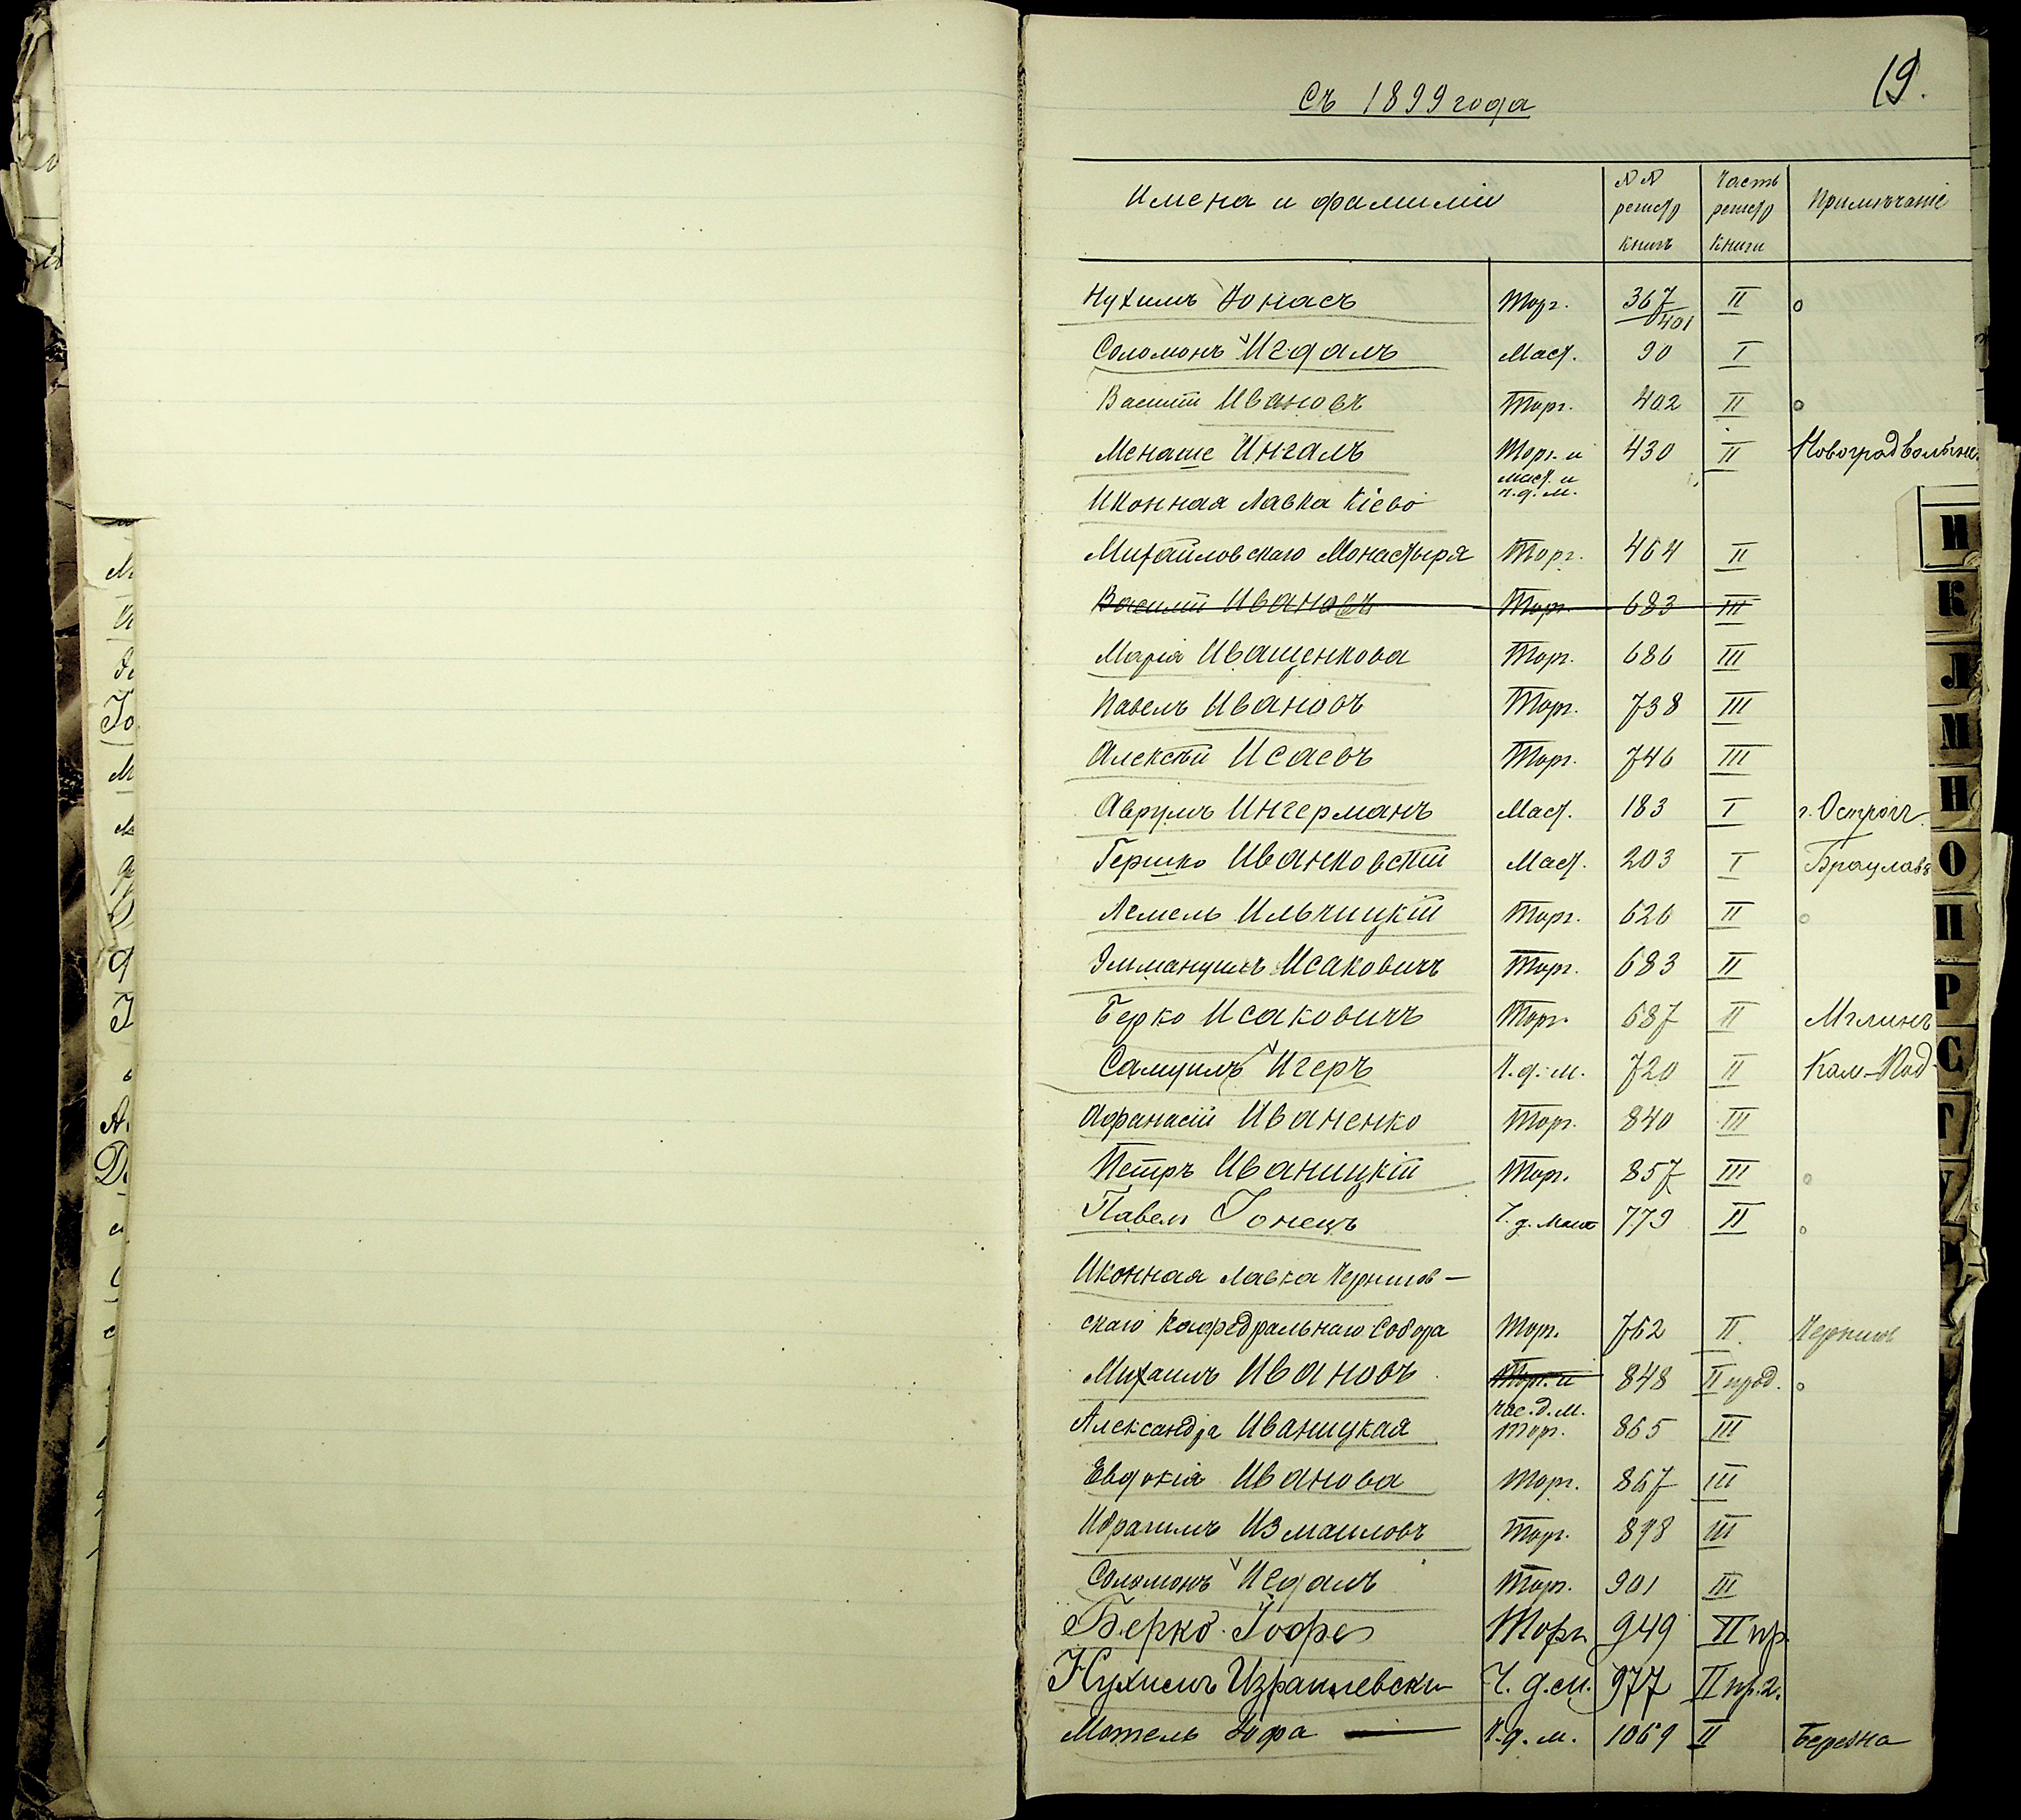 19.
Съ 1899 года
Имена и фамиліи
№№ регистр книгъ
Часть регистр книги
Примѣчаніе
Нухимъ Іонасъ Торг. 367/401 II о
Соломонъ Игдалъ Маст. 90 I
Василій Ивановъ Торг. 402 II о
Менаше Ингалъ Торг. и маст. и ч.д.м. 430 II Новоградволынск
Иконная лавка Кіево
Михайловскаго Монастыря Торг. 464 II
Василій Ивановъ Торг. 683 III
Марія Иващенкова Торг. 686 III
Павелъ Ивановъ Торг. 738 III
Алексѣй Исаевъ Торг. 746 III
Аврумъ Ингерманъ Маст. 183 I г. Острогъ
Гершко Иванковскій Маст. 203 I Брацлавъ
Лемель Ильчицкій Торг. 626 II о
Эммануилъ Исаковичъ Торг. 683 II
Берко Исаковичъ Торг. 687 II Мглинъ
Самуилъ Игеръ Ч.д.м. 720 II Кам-Под.
Афанасій Иваненко Торг. 840 III
Петръ Иваницкій Торг. 857 III о
Павелъ Іонецъ Ч.д. 779 II о
Иконная лавка Чернигов-
скаго Кафедральнаго Собора Торг. 762 II. Чернигов
Михаилъ Ивановъ Торг. и час.д.м. 848 II прод. о
Александра Иваницкая Торг. 865 III
Евдокія Иванова Торг. 867 III
Ибрагимъ Измаиловъ Торг. 898 III
Соломонъ Игдалъ Торг. 901 III
Берко Іофе Торг 949 II пр
Нухимъ Израилевски Ч.д.м. 977 II пр.2.
Мотель Іофа Ч.д.м. 1069 II Березна
И
К
Л
М
Н
О
П
Р
С
Т
У